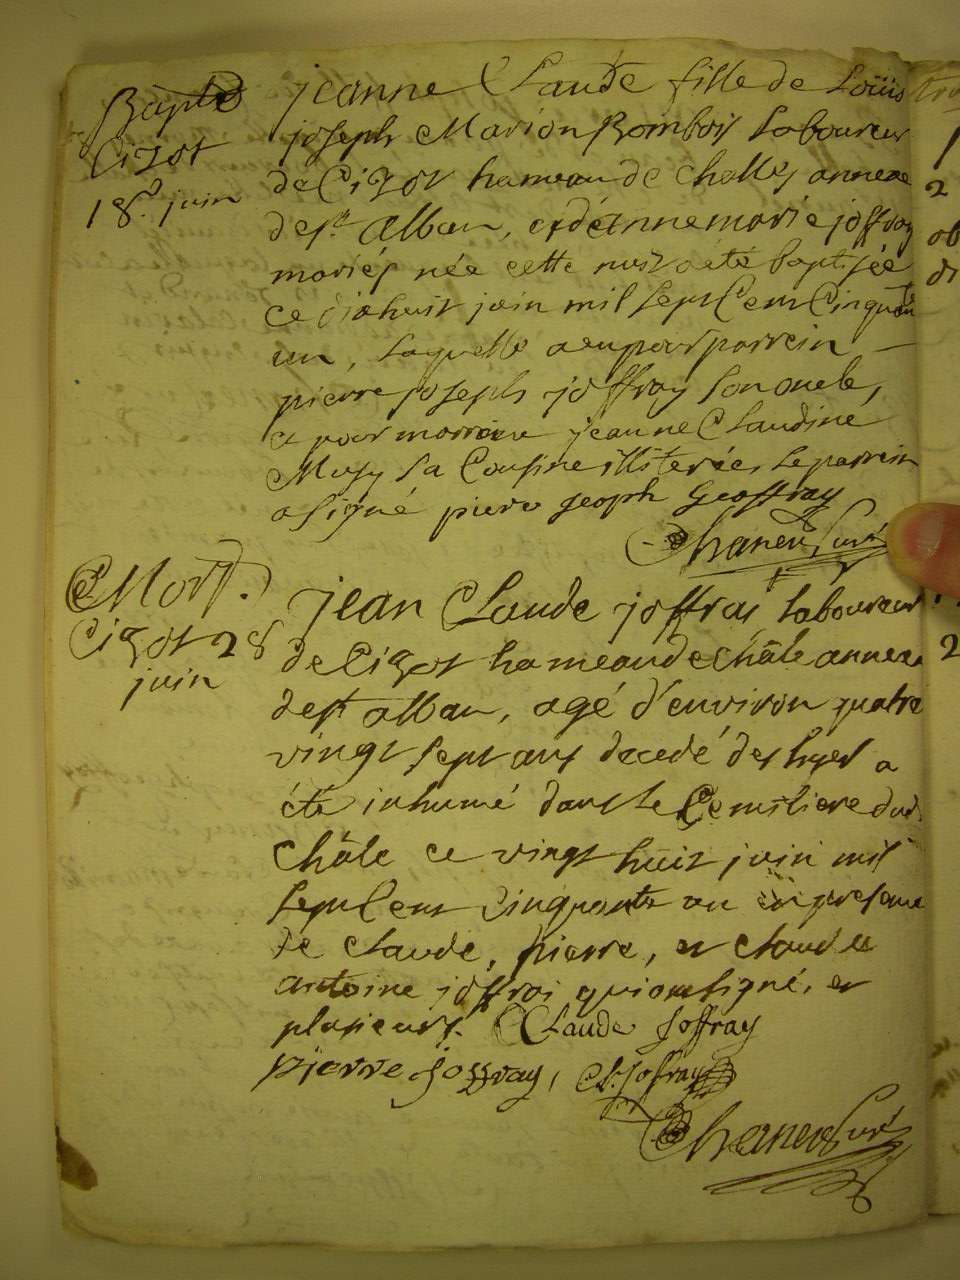 Bapte
Cizot
18e juin
jeanne Claude fille de Loüis
joseph Marion Rombois Laboureur
de Cizot hameau de Challes annexe
de st alban, et d'annemarie joffray
mariés née cette nuit a été baptisée
ce dixhuit juin mil sept Cent Cinquante
un, laquelle a eu pour parrein
pierre joseph joffray son oncle,
et pour marreine jeanne Claudine
sa Cousine illiterée, le parrein
a signé piere geoph Geoffray
Curé
Mort.
Cizot 28
juin
jean Claude joffrai laboureur
de Cizot hameau de Châle annexe
de st alban, agé d'environ quatre
vingt sept ans decedé des hyer a
été inhumé dans le Cemitiere dud
Châle ce vingt huit juin mil
sept Cent Cinquante un en presence
de claude, pierre, et claude
antoine joffroi qui ont signé, et
plusieurs. Claude Joffray
pierre joffray, Cl. joffray
Curé
2
2